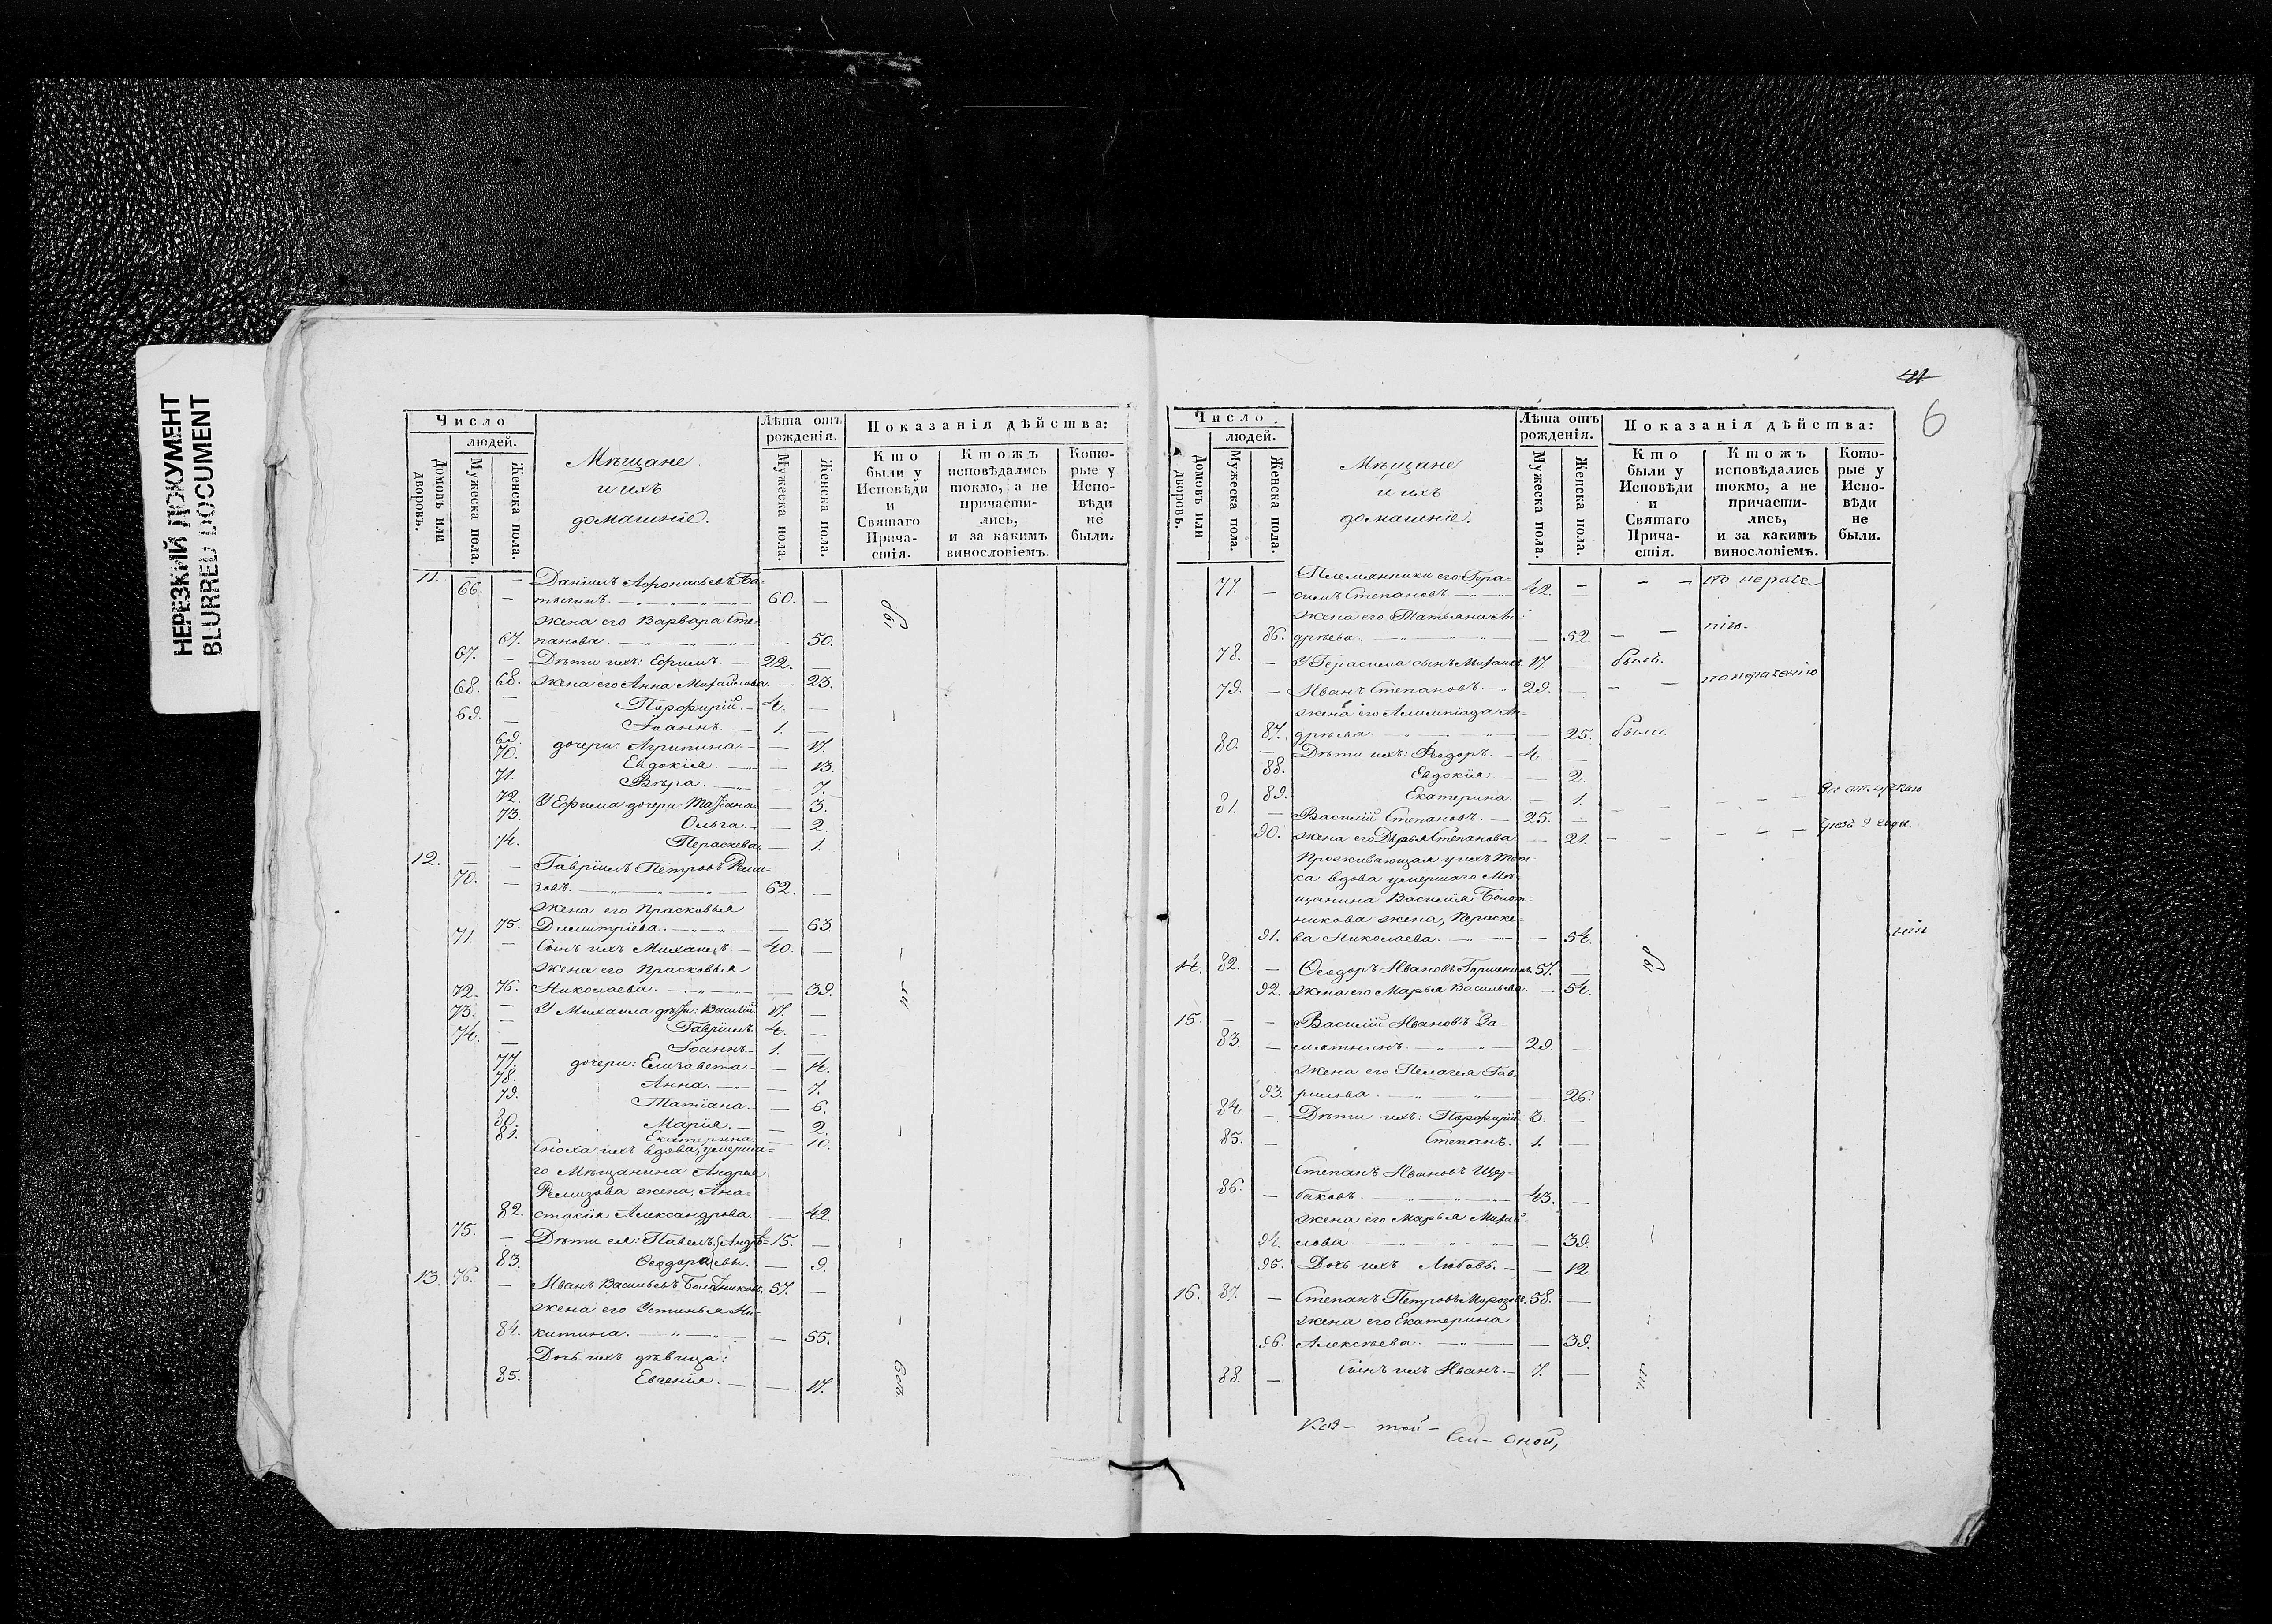 НЕРЕЗКИЙ ДОКУМЕНТ
BLURRED DOCUMENT
Число
людей.
Домовъ или дворовъ.
Мужеска пола.
Женска пола.
Мѣщане
и ихъ
домашніе.
Лѣта отъ рожденія.
Мужеска пола.
Женска пола.
Показанія дѣйства:
Кто были у Исповѣди и Святаго Причастія.
Ктожъ исповѣдались токмо, а не причастились, и за какимъ винословіемъ.
Которые у Исповѣди не были.
11. — Даніилъ Афонасьевъ Ба=
66. — тыгинъ. — 60. —
жена его Варвара Сте=
67. панова. — 50.
67. — Дѣти ихъ: Ефимъ. — 22. —
68. жена его Анна Михайлова. — 23.
68. — Порфирій. — 4. —
69. — Іоаннъ. — 1. —
69. дочери: Агрипина. — 17.
70. Евдокія. — 13.
71. Вѣра. — 7.
72. У Ефима дочери: Татіана. — 3.
73. Ольга. — 2.
74. Пераскева. — 1.
12. — — Гавріилъ Петровъ Реми=
70. — зовъ. — 62. —
жена его Прасковья
75. Димитріева. — 63.
71. — Сынъ ихъ Михаилъ. — 40. —
жена его Прасковья
76. Николаева. — 39.
72. — У Михаила дѣти: Василій. 17. —
73. — Гавріилъ. 4. —
74. — Іоаннъ. 1. —
77. дочери: Елизавета. — 14.
78. Анна. — 7.
79. Матіана. — 6.
80. Марія. — 2.
81. Екатерина. — 10.
Сноха ихъ вдова, умерша=
го Мѣщанина Андрея
Ремизова жена, Ана=
82. стасія Александрова. — 42.
75. — Дѣти ея: Павелъ Андрѣ= 15. —
83. Ѳеодора евы. — 9.
13. 76. — Иванъ Васильевъ Болотниковъ. 57. —
жена его Устинья Ни=
84. китина. — 55.
Дочь ихъ дѣвица:
85. Евгенія. — 17.
6
Число
людей.
Домовъ или дворовъ.
Мужеска пола.
Женска пола.
Мѣщане
и ихъ
домашніе.
Лѣта отъ рожденія.
Мужеска пола.
Женска пола.
Показанія дѣйства:
Кто были у Исповѣди и Святаго Причастія.
Ктожъ исповѣдались токмо, а не причастились, и за какимъ винословіемъ.
Которые у Исповѣди не были.
Племянники его: Гера=
77. — симъ Степановъ — 42. —
жена его Татьяна Ан=
86. дрѣева. — 52. — нію.
78. — У Герасима сынъ Михаилъ. 17. — былъ.
79. — Иванъ Степановъ. — 29. —
жена его Алимпіада Ан=
87. дрѣева — 25. были.
80. — Дѣти ихъ: Ѳеодоръ. — 4. —
88. Евдокія — 2.
89. Екатерина — 1.
81. — Василій Степановъ. — 25. —
90. жена его Дарья Степанова. — 21.
Проживающая у нихъ тет=
ка вдова умершаго Мѣ=
щанина Василія Болот=
никова жена, Пераске=
91. ва Николаева. — 54.
14. 82. — Ѳеодоръ Ивановъ Горшенинъ. 57. —
92. жена его Марья Васильева. — 54.
15. — — Василій Ивановъ За=
83. — мятнинъ. — 29. —
жена его Пелагея Гав=
93. рилова. — 26.
84. — Дѣти ихъ: Порфирій. 3. —
85. — Степанъ. 1. —
Степанъ Ивановъ Щер=
86. — баковъ. — 43. —
жена его Марья Михай=
94. лова. — 39.
95. Дочь ихъ Любовь. — 12.
16. 87. — Степанъ Петровъ Морозовъ. 58. —
жена его Екатерина
96. Алексѣева. — 39.
88. — Сынъ ихъ Иванъ. — 7. —